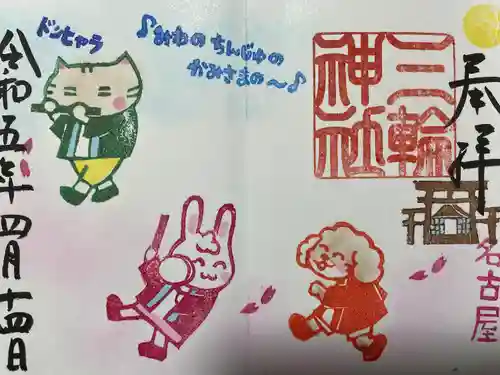 奉拝
三輪
神社
名古屋
♪みわの ちんじゅの
かみさまの～♪
ドンヒャラ
令和五年四月十四日